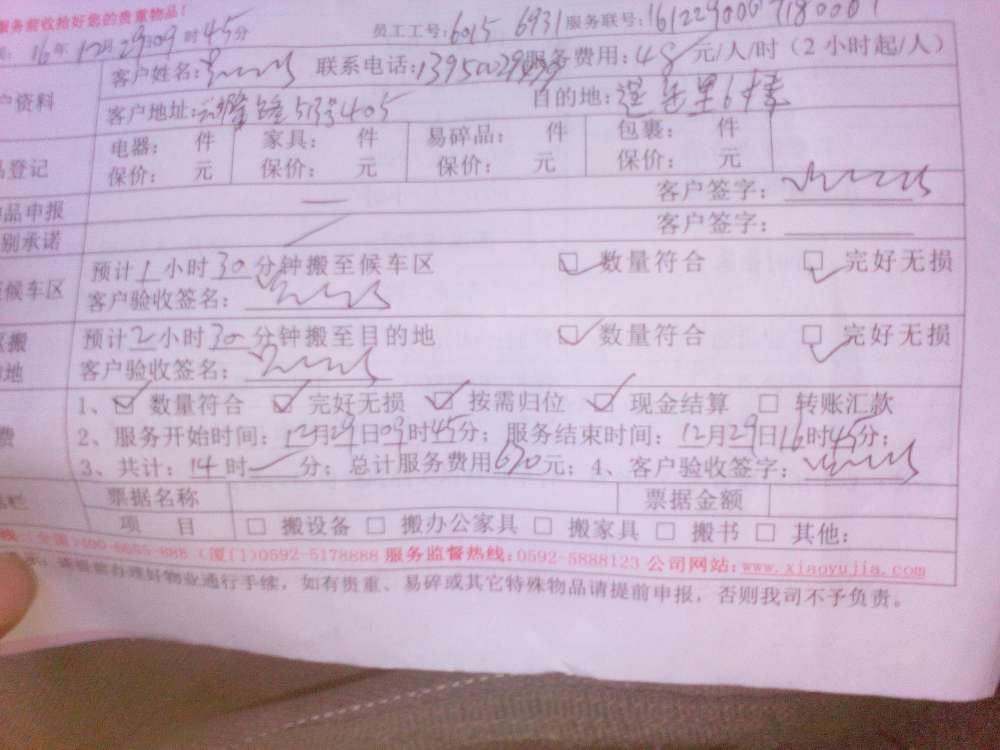 服务前收拾好您的贵重物品!
员工工号:6015 6931 服务联号:
16年12月29日09时45分
客户姓名: 联系电话: 服务费用:48元/人/时(2小时起/人)
户资料
客户地址: 513号405 目的地: 里6
电器: 件 家具: 件 易碎品: 件 包裹: 件
品登记
保价: 元 保价: 元 保价: 元 保价: 元
品申报 客户签字:
别承诺 客户签字:
预计1小时30分钟搬至候车区 数量符合 完好无损
候车区
客户验收签名:
预计2小时30分钟搬至目的地 数量符合 完好无损
搬
地
客户验收签名:
1、 数量符合 完好无损 按需归位 现金结算 转账汇款
费
2、服务开始时间:12月29日09时45分;服务结束时间:12月29日16时45分;
3、共计:14时 分;总计服务费用670元;4、客户验收签字:
栏 票据名称 票据金额
项 目 搬设备 搬办公家具 搬家具 搬书 其他:
(厦门)0592-5178888 服务监督热线:0592-5888123 公司网站:www.xiaoyujia.com
办理好物业通行手续,如有贵重、易碎或其它特殊物品请提前申报,否则我司不予负责。